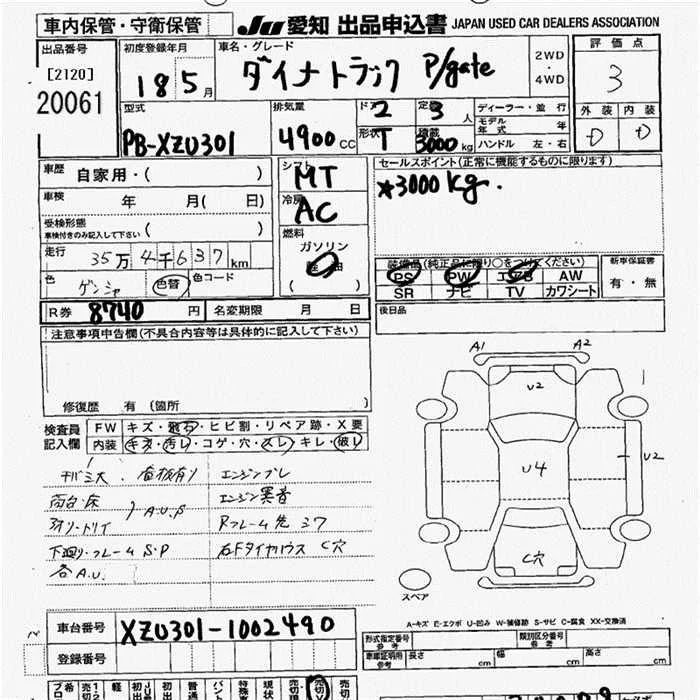 車内保管・守衛保管
JU 愛知 出品申込書 JAPAN USED CAR DEALERS ASSOCIATION
出品番号
[2120]
20061
初度登録年月
18 5月
車名・グレード
ダイナトラック P/gate
2WD・4WD
評価点
3
型式
PB-XZU301
排気量
4900 CC
ドア 2
定員 3 人
形状 T
積載 3000 kg
ディーラー・並行
モデル年式 年
ハンドル 左・右
外装 内装
D D
車歴 自家用・( )
車検 年 月( 日)
受検形態 ( )
車検付きのみ記入して下さい
走行 35万4千637km
色 ゲンシャ 色替 色コード
シフト MT
冷房 AC
燃料 ガソリン
軽油
( )
セールスポイント(正常に機能するものに限ります)
★3000kg.
装備品(純正品に限り○をつけてください)
PS PW エアB AW
SR ナビ TV カワシート
新車保証書
有・無
後日品
R券 8740円 名変期限 月 日
注意事項申告欄(不具合内容等は具体的に記入して下さい)
修復歴 有 (箇所 )
検査員記入欄
FW キズ・飛石・ヒビ割・リペア跡・X要
内装 キズ・汚レ・コゲ・穴・スレ・キレ・破レ
エンジンブレ
荷台・床 A.U.S エンジン異音
Rフレーム先 37
下廻り・フレーム S・P
各A.U.
C穴
A1 A2
U2
U4
U2
C穴
スペア
A-キズ E-エクボ U-凹み W-補修跡 S-サビ C-腐食 XX-交換済
車台番号 XZU301-1002490
登録番号
形式指定番号
参考
類別区分番号
参考
車庫証明用
参考
長さ cm 幅 cm 高さ cm